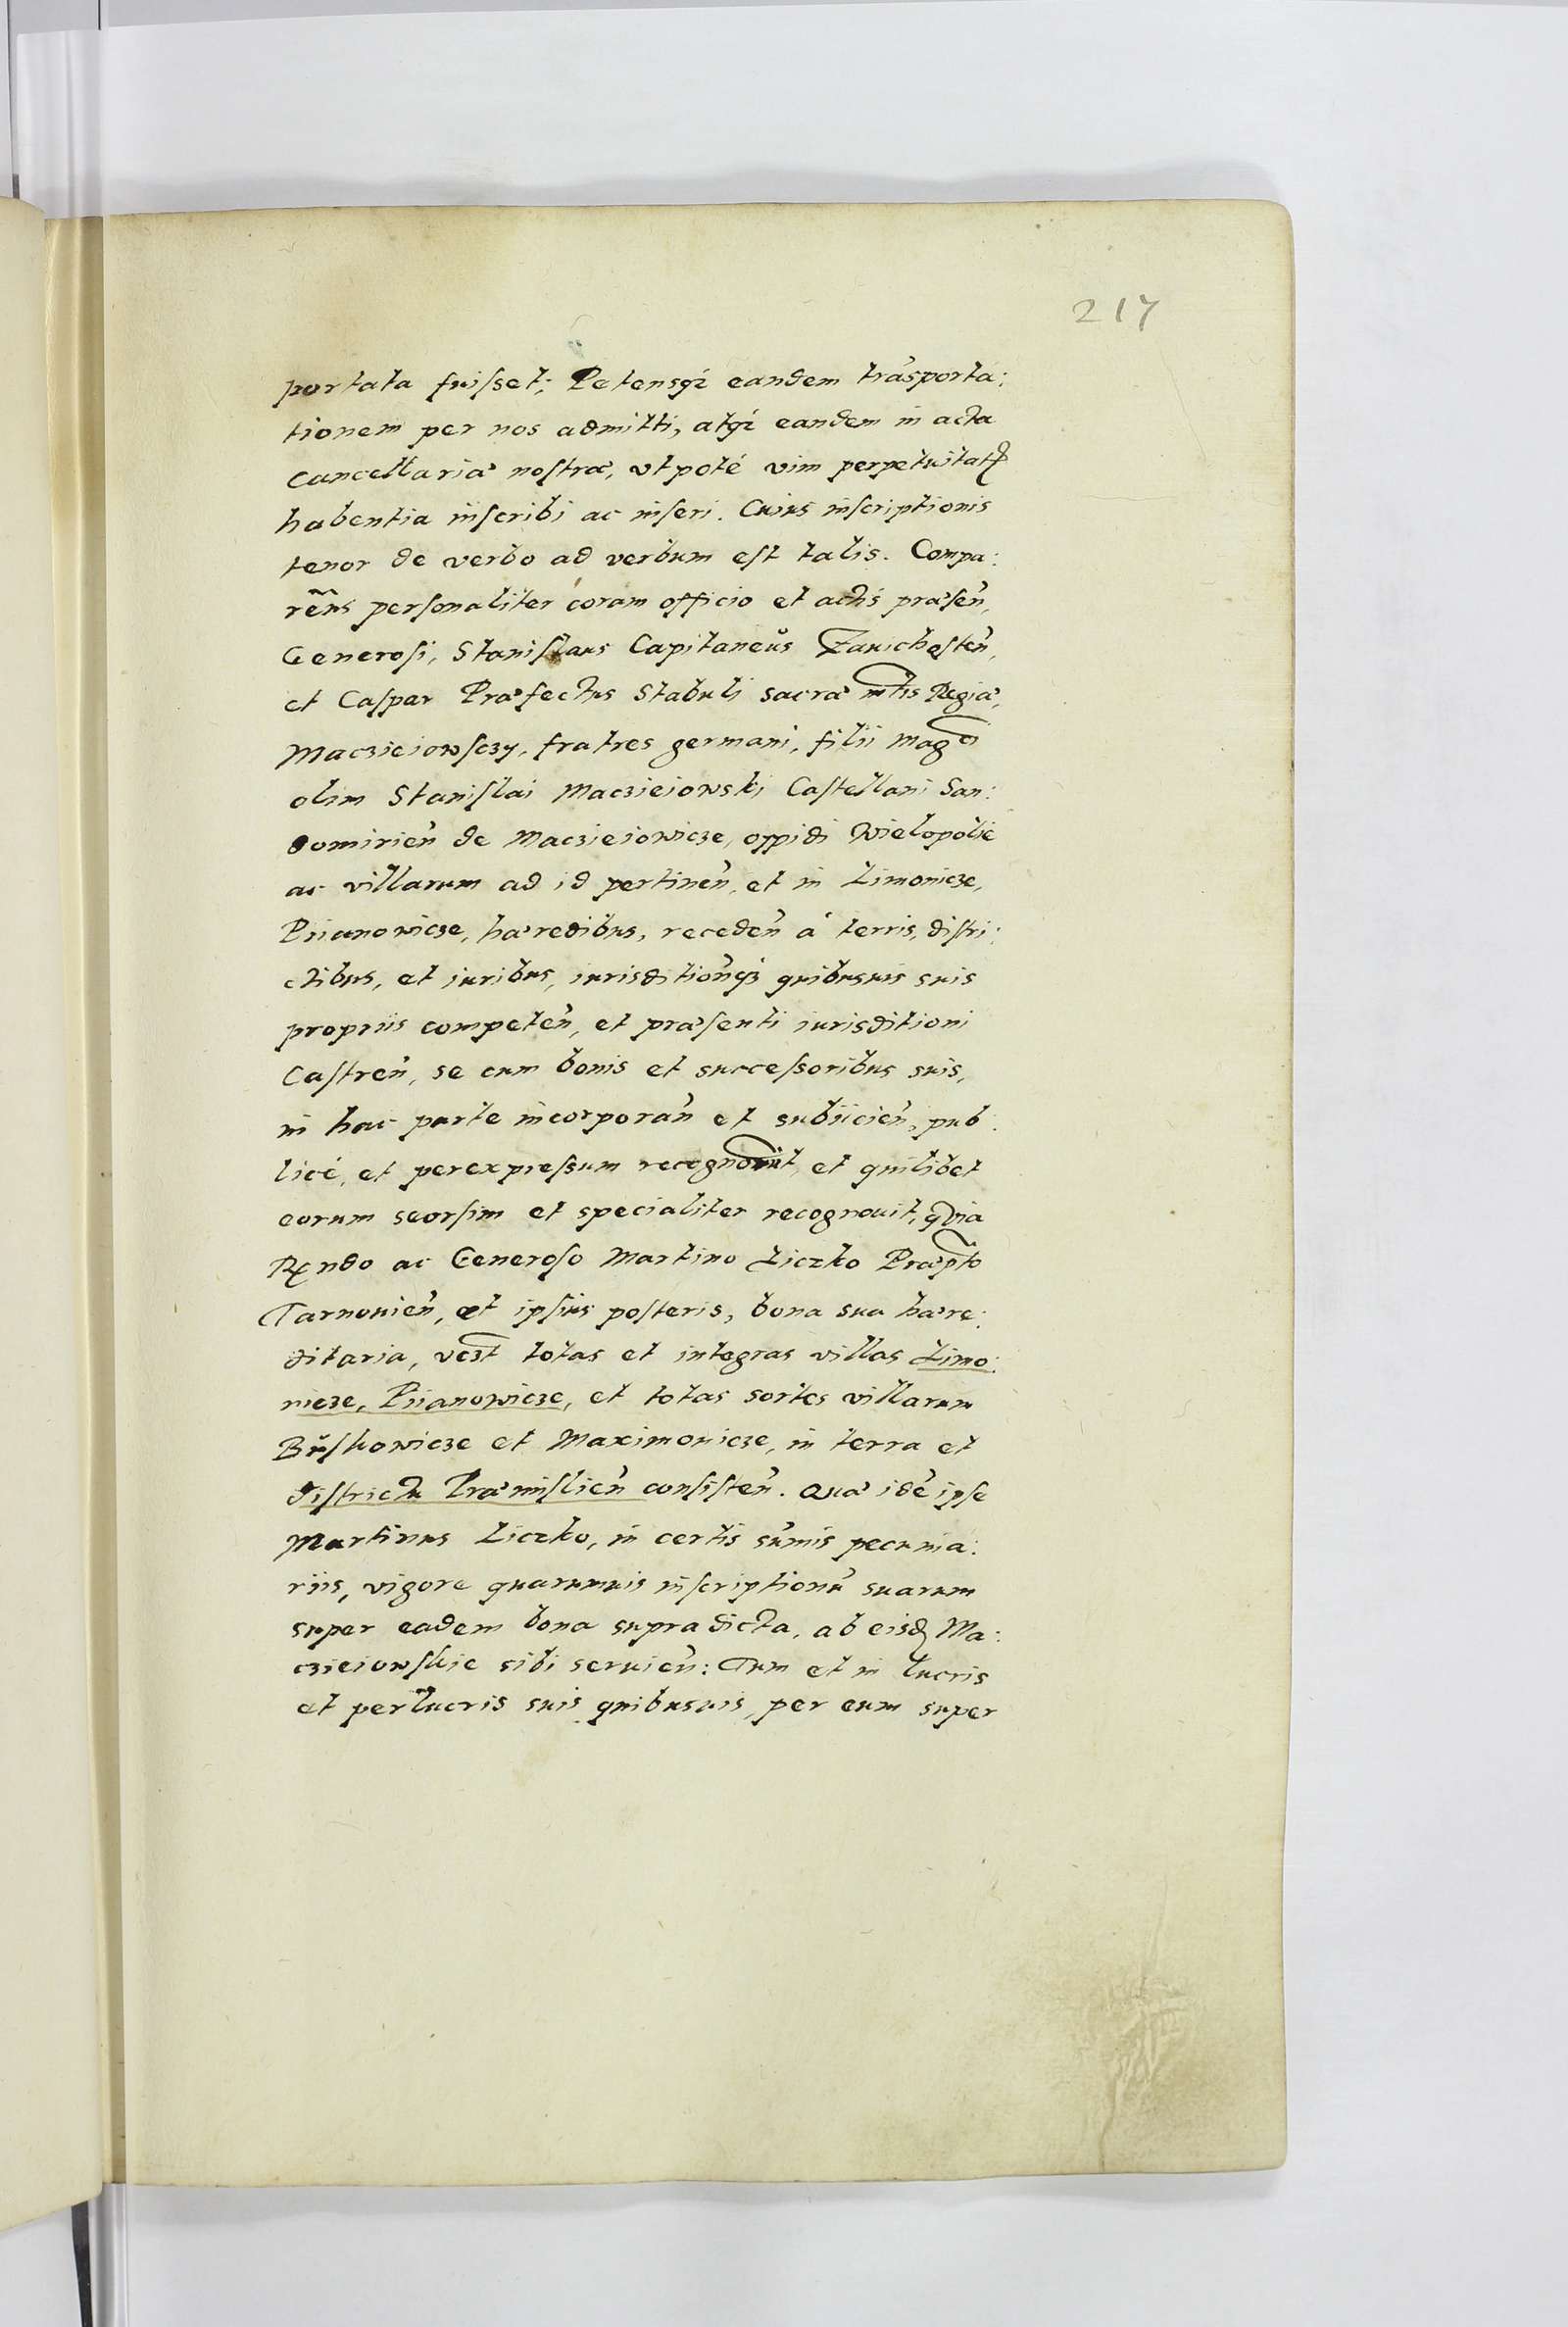 217
portata fuisset; Petensq́ʒ eandem trãsporta:
tionem per nos admitti, atq́ʒ eandem in acta
Cancellariæ nostræ, vtpotè vim perpetuitatꝭ
habentia inscribi ac inseri. Cuius inscriptionis
tenor de verbo ad verbum est talis. Compa:
reñs personaliter coram officio et actis præseñ,
Generosi, Stanislaus Capitaneus Zauichosteñ,
et Caspar Præfectus Stabuli sacræ mtis Regiæ,
Maczieiowsczy, fratres germani, filii Magci
olim Stanislai Maczieiowski Castellani San:
domirieñ de Maczieiowicze, oppidi Wielopolie
ac villarum ad id pertineñ, et in Limonicze,
Piianowicze, hæredibus, recedeñ à terris, distri:
ctibus, et iuribus, iurisditioñq́ʒ quibusuis suis
propriis competeñ, et præsenti iurisditioni
Castreñ, se cum bonis et successoribus suis,
in hac parte incorporañ et subiicieñ, pub:
licè, et per expressum recognouit, et quilibet
eorum seorsim et specialiter recognouit, quia
Rndo ac Generoso Martino Liczko Præpto
Tarnouieñ, et ipsius posteris, bona sua hære:
ditaria, vczt totas et integras villas Limo:
nicze, Piianowicze, et totas sortes villarum
Buskowicze et Maximouicze, in terra et
districtu Præmislieñ consisteñ. Quæ idẽ ipse
Martinus Liczko, in certis sũmis pecunia:
riis, vigore quarumuis inscriptionũ suarum
super eadem bona supra dicta, ab eisdꝫ Ma:
czieiowskie sibi seruieñ: Tum et in lucris
et perlucris suis quibusuis, per eum super